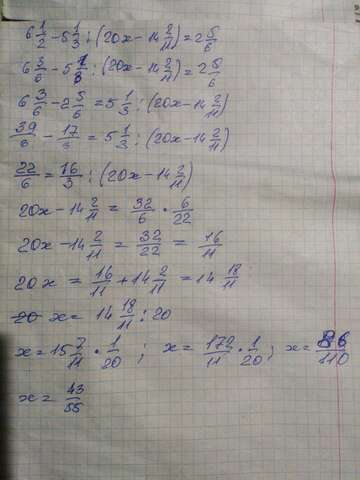 6 1/2 - 5 1/3 : (20x - 14 2/11) = 2 5/6
6 3/6 - 5 1/3 : (20x - 14 2/11) = 2 5/6
6 3/6 - 2 5/6 = 5 1/3 : (20x - 14 2/11)
39/6 - 17/3 = 5 1/3 : (20x - 14 2/11)
22/6 = 16/3 : (20x - 14 2/11)
20x - 14 2/11 = 32/6 · 6/22
20x - 14 2/11 = 32/22 = 16/11
20x = 16/11 + 14 2/11 = 14 18/11
x = 14 18/11 : 20
x = 15 7/11 · 1/20 ; x = 172/11 · 1/20 ; x = 86/110
x = 43/55